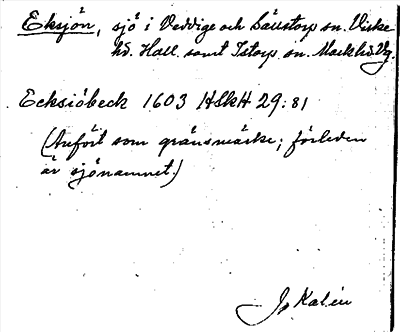 Eksjön, sjö i Veddige och Sällstorp sn. Viske
hd. Hall. samt Istorp sn. Mark hd. Vg.
Ecksiöbeck 1603 HSkH 29:81
(Anfört som gränsmärke; förleden
är sjönamnet.)
Kalén